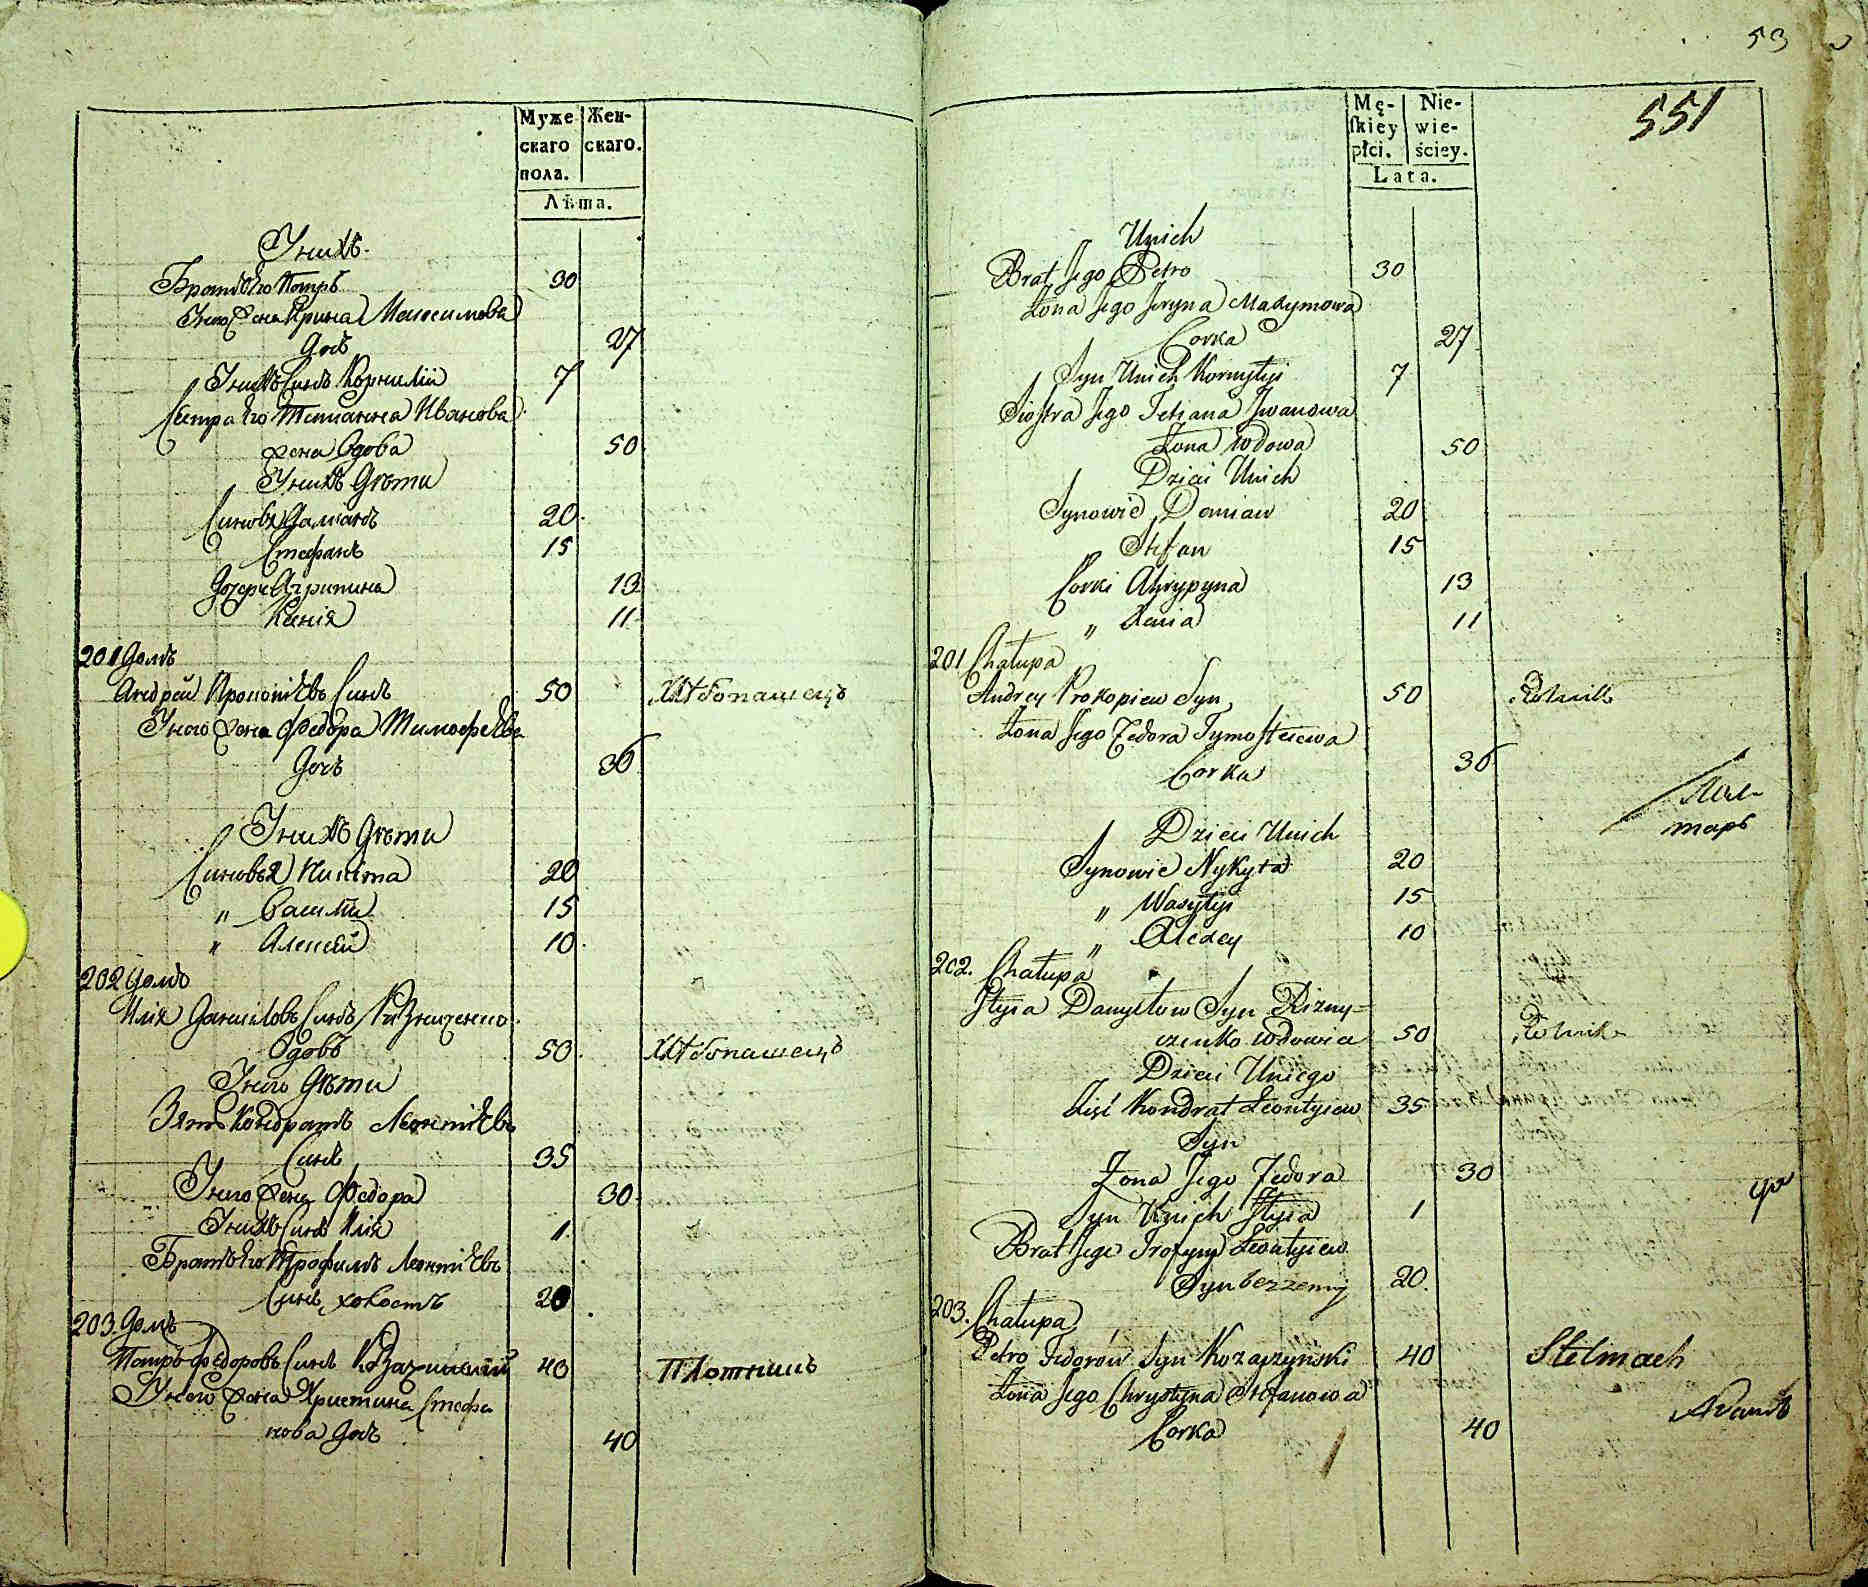 Муже
скаго
пола.
Жен-
скаго.
Лѣта.
У нихъ
Братъ Его Петръ 30
У него жена Ирина Максимова
дочь 27
У нихъ Синъ Корнилій 7
Сестра Его Татианна Иванова
жена вдова 50
У нихъ дѣти
Синовья Даміанъ 20
Стефанъ 15
Дочери Агрипина 13
Ксенія 11
201 Домъ
Андрей Прокопіевъ Синъ 50 Хлѣбопашецъ
У него жена Федора Тимофѣева
Дочь 36
У нихъ дѣти
Синовья Никита 20
„ Василій 15
„ Алексѣй 10
202 Домъ
Илія Даниловъ Синъ Ризниченко
Вдовъ 50 Хлѣбопашецъ
У него дѣти
Зять Кондратъ Леонтіевъ
Синъ 35
У него жена Федора 30
У нихъ Синъ Илія 1
Братъ Его Трофимъ Леонтіевъ
Синъ холостъ 20
203 Домъ
Петръ Федоровъ Синъ Козачинскій 40 Плотникъ
У него жена Христина Стефа
нова дочь 40
53
551
Mę-
skiey
płci.
Nie-
wie-
ściey.
Lata.
Unich
Brat Jego Petro 30
Żona Jego Jryna Maxymowa
Corka 27
Syn Unich Kornyłyi 7
Siostra Jego Tetiana Jwanowa
Żona Wdowa 50
Dzieci Unich
Synowie Domian 20
Stefan 15
Corki Ahrypyna 13
„ Xenia 11
201 Chałupa
Andrey Prokopiew Syn 50 Rolnik
Żona Jego Fedora Tymofteiewa
Corka 36
Dzieci Unich
Synowie Nykyta 20
„ Wasyłyi 15
„ Alexey 10
202. Chałupa
Jłyia Danyłow Syn Rizny-
czenko Wdowiec 50 Rolnik
Dzieci Uniego
Zięć Kondrat Leontyiew 35
Syn
Żona Jego Fedora 30
Syn Unich Jłyia 1
Brat Jego Trofym Leontyiew
Syn bezzenny 20.
203. Chałupa
Petro Fedorów Syn Kozaczynski 40 Stelmach
Żona Jego Chrystyna Stefanowa
Corka 40